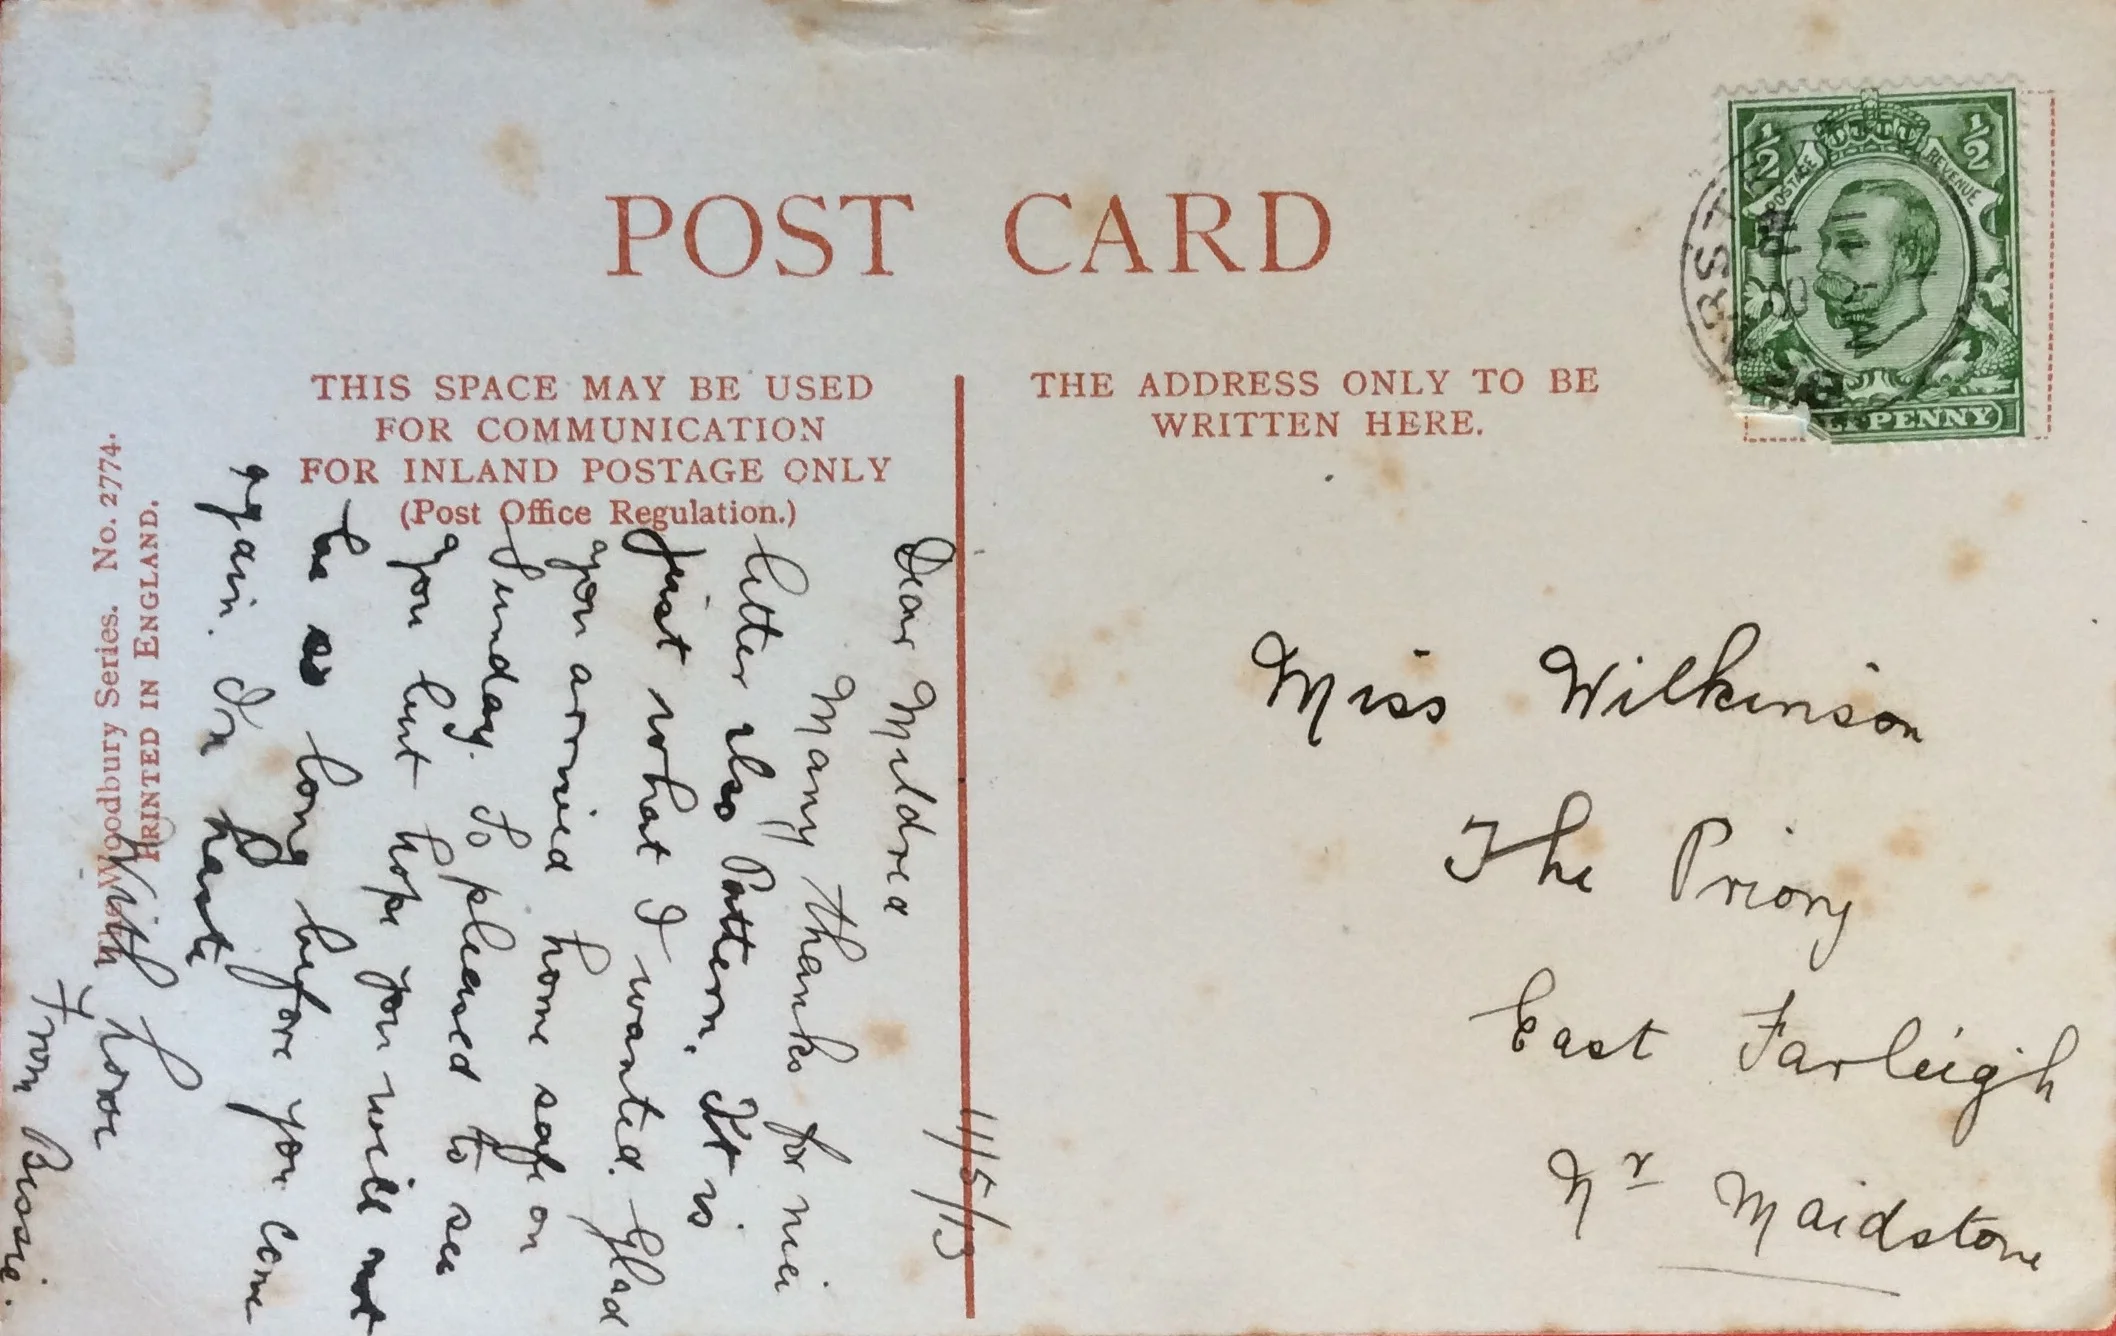 POST CARD
THIS SPACE MAY BE USED
FOR COMMUNICATION
FOR INLAND POSTAGE ONLY
(Post Office Regulation.)
THE ADDRESS ONLY TO BE
WRITTEN HERE.
The Woodbury Series. No. 2774.
PRINTED IN ENGLAND.
11/5/13
Dear Mildred
Many thanks for nice
letter also Pattern. It is
just what I wanted. Glad
you arrived home safe on
Sunday. So pleased to see
you but hope you will not
be so long before you come
again. In haste
With love
From Bessie.
Miss Wilkinson
The Priory
East Farleigh
Nr Maidstone
1/2 1/2
POSTAGE REVENUE
PENNY